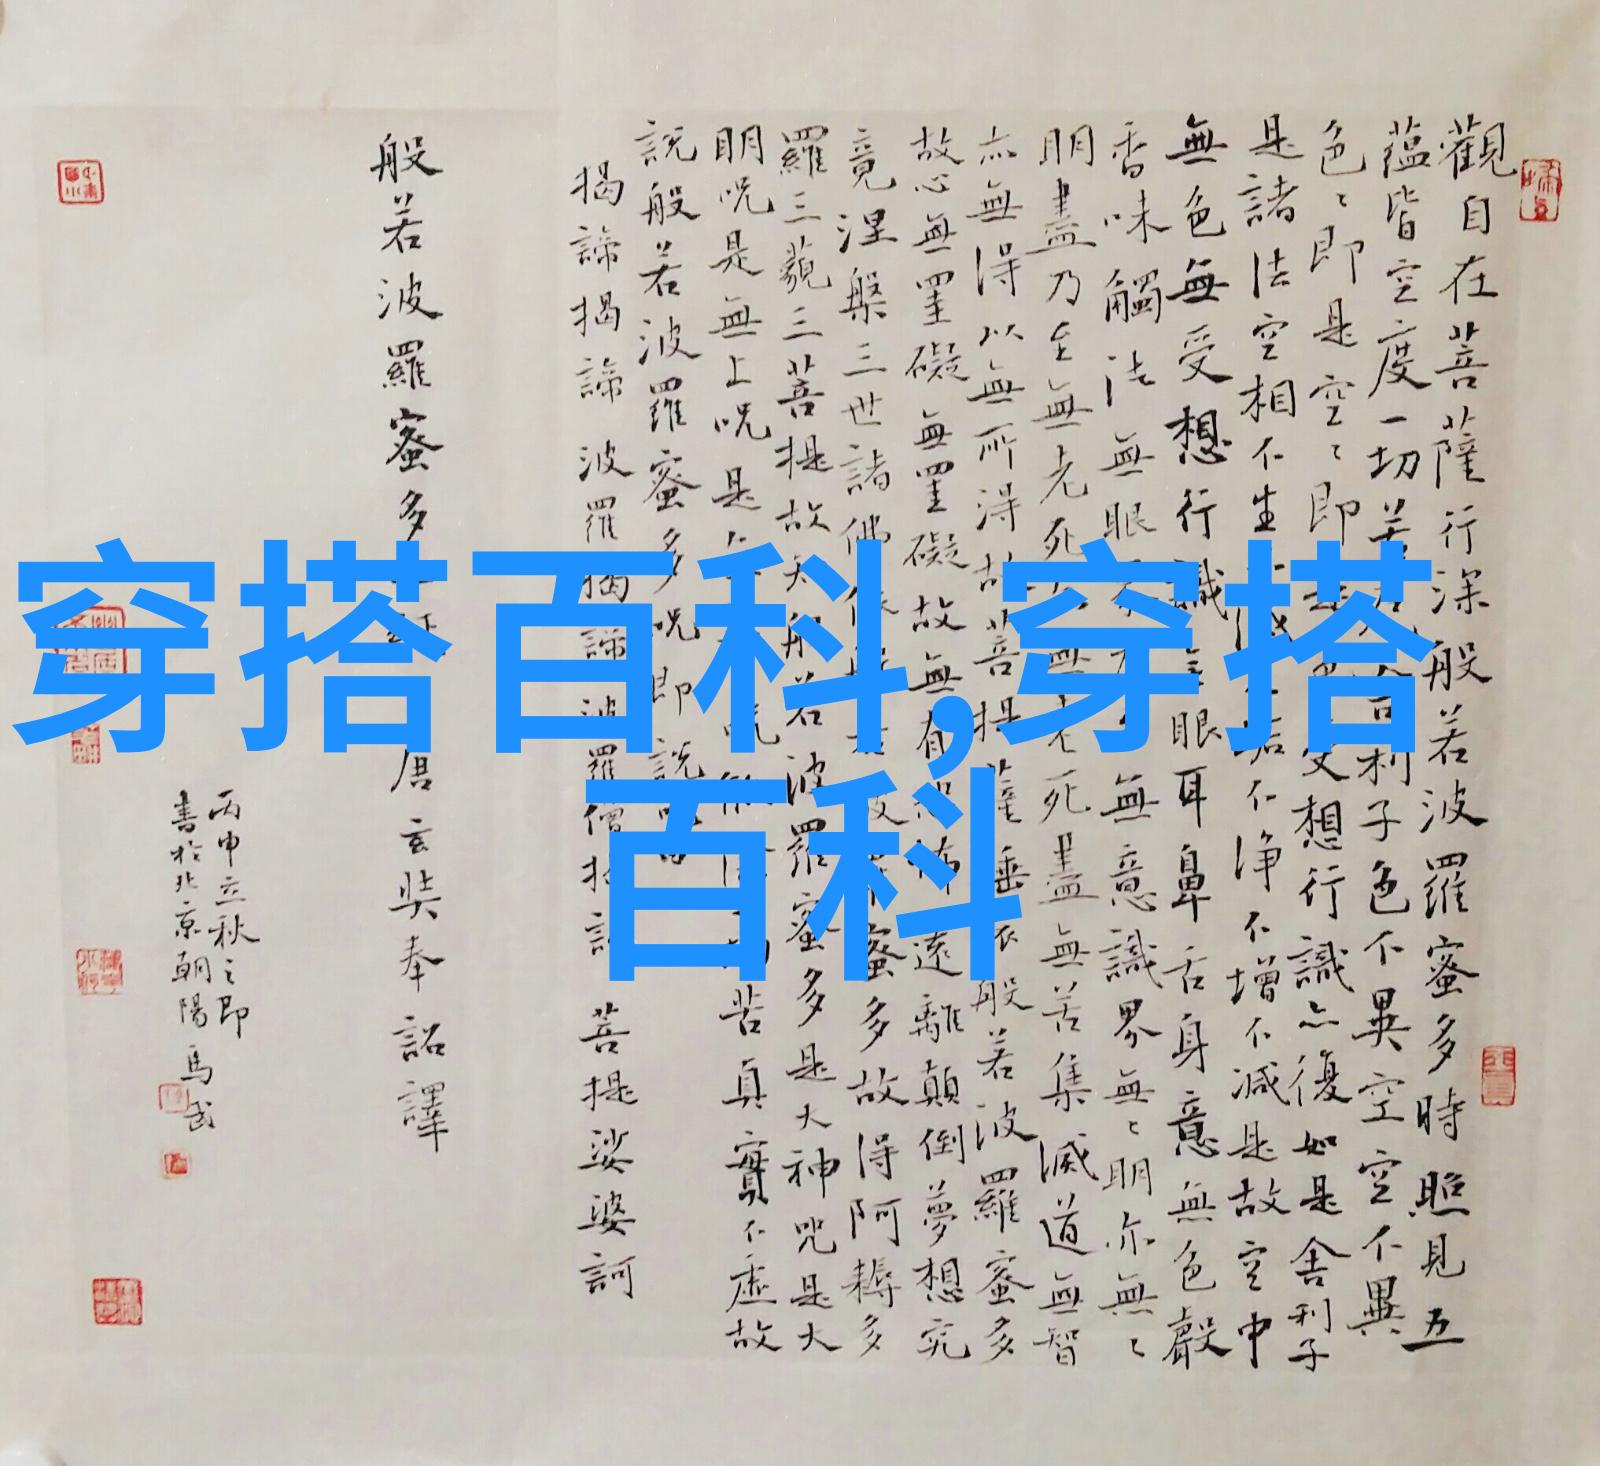 穿搭百科,穿搭
百科
觀自在菩薩行深般若波羅蜜多時照見五
蘊皆空度一切苦利子色不異空空不異
色〻即是空〻即是受想行識亦復如是舍利子
是諸法空相不生垢不净不增不減是故空中
無色無受想行識無眼耳鼻舌身意無色聲
香味觸法無眼無意識界無〻明亦無〻
明盡乃至無老死無老死盡無苦集滅道無智
亦無得以無所得故菩提薩埵依般若波羅蜜多
故心無罣礙無罣礙故無有怖遠離顛倒夢想究
竟涅槃三世諸佛依蜜多故得阿耨多
羅三藐三菩提故知般若波羅蜜多是大神咒是大
明呪是無上呪是呪能除苦真實不虛故
說般若波羅蜜多呪即說
揭諦揭諦波羅揭諦波羅僧揭諦菩提娑婆訶
般若波羅蜜多唐玄奘奉詔譯
丙申立秋之即
書於北京朝陽馬武